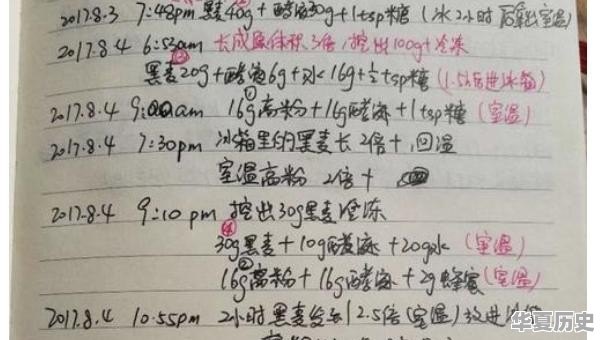 2017.8.3 7:48pm 黑麦40g+酵液30g+1tsp糖(冰2小时后室温)
2017.8.4 6:53am 长成原体积3倍,挖出100g+冷冻
③
黑麦20g+酵液6g+水16g+½tsp糖(1.5h后进冰箱)
①
2017.8.4 9:00am 16g高粉+16g酵液+1tsp糖(室温)
2017.8.4 7:30pm 冰箱里的黑麦长2倍+,回温
室温高粉 2倍+
2017.8.4 9:10pm 挖出30g黑麦冷冻
④
30g黑麦+10g酵液+20g水(室温)
②
16g高粉+16g酵液+2g蜂蜜(室温)
2017.8.4 10:55pm 2小时黑麦发至2.5倍(室温)放进冰箱
华夏历史